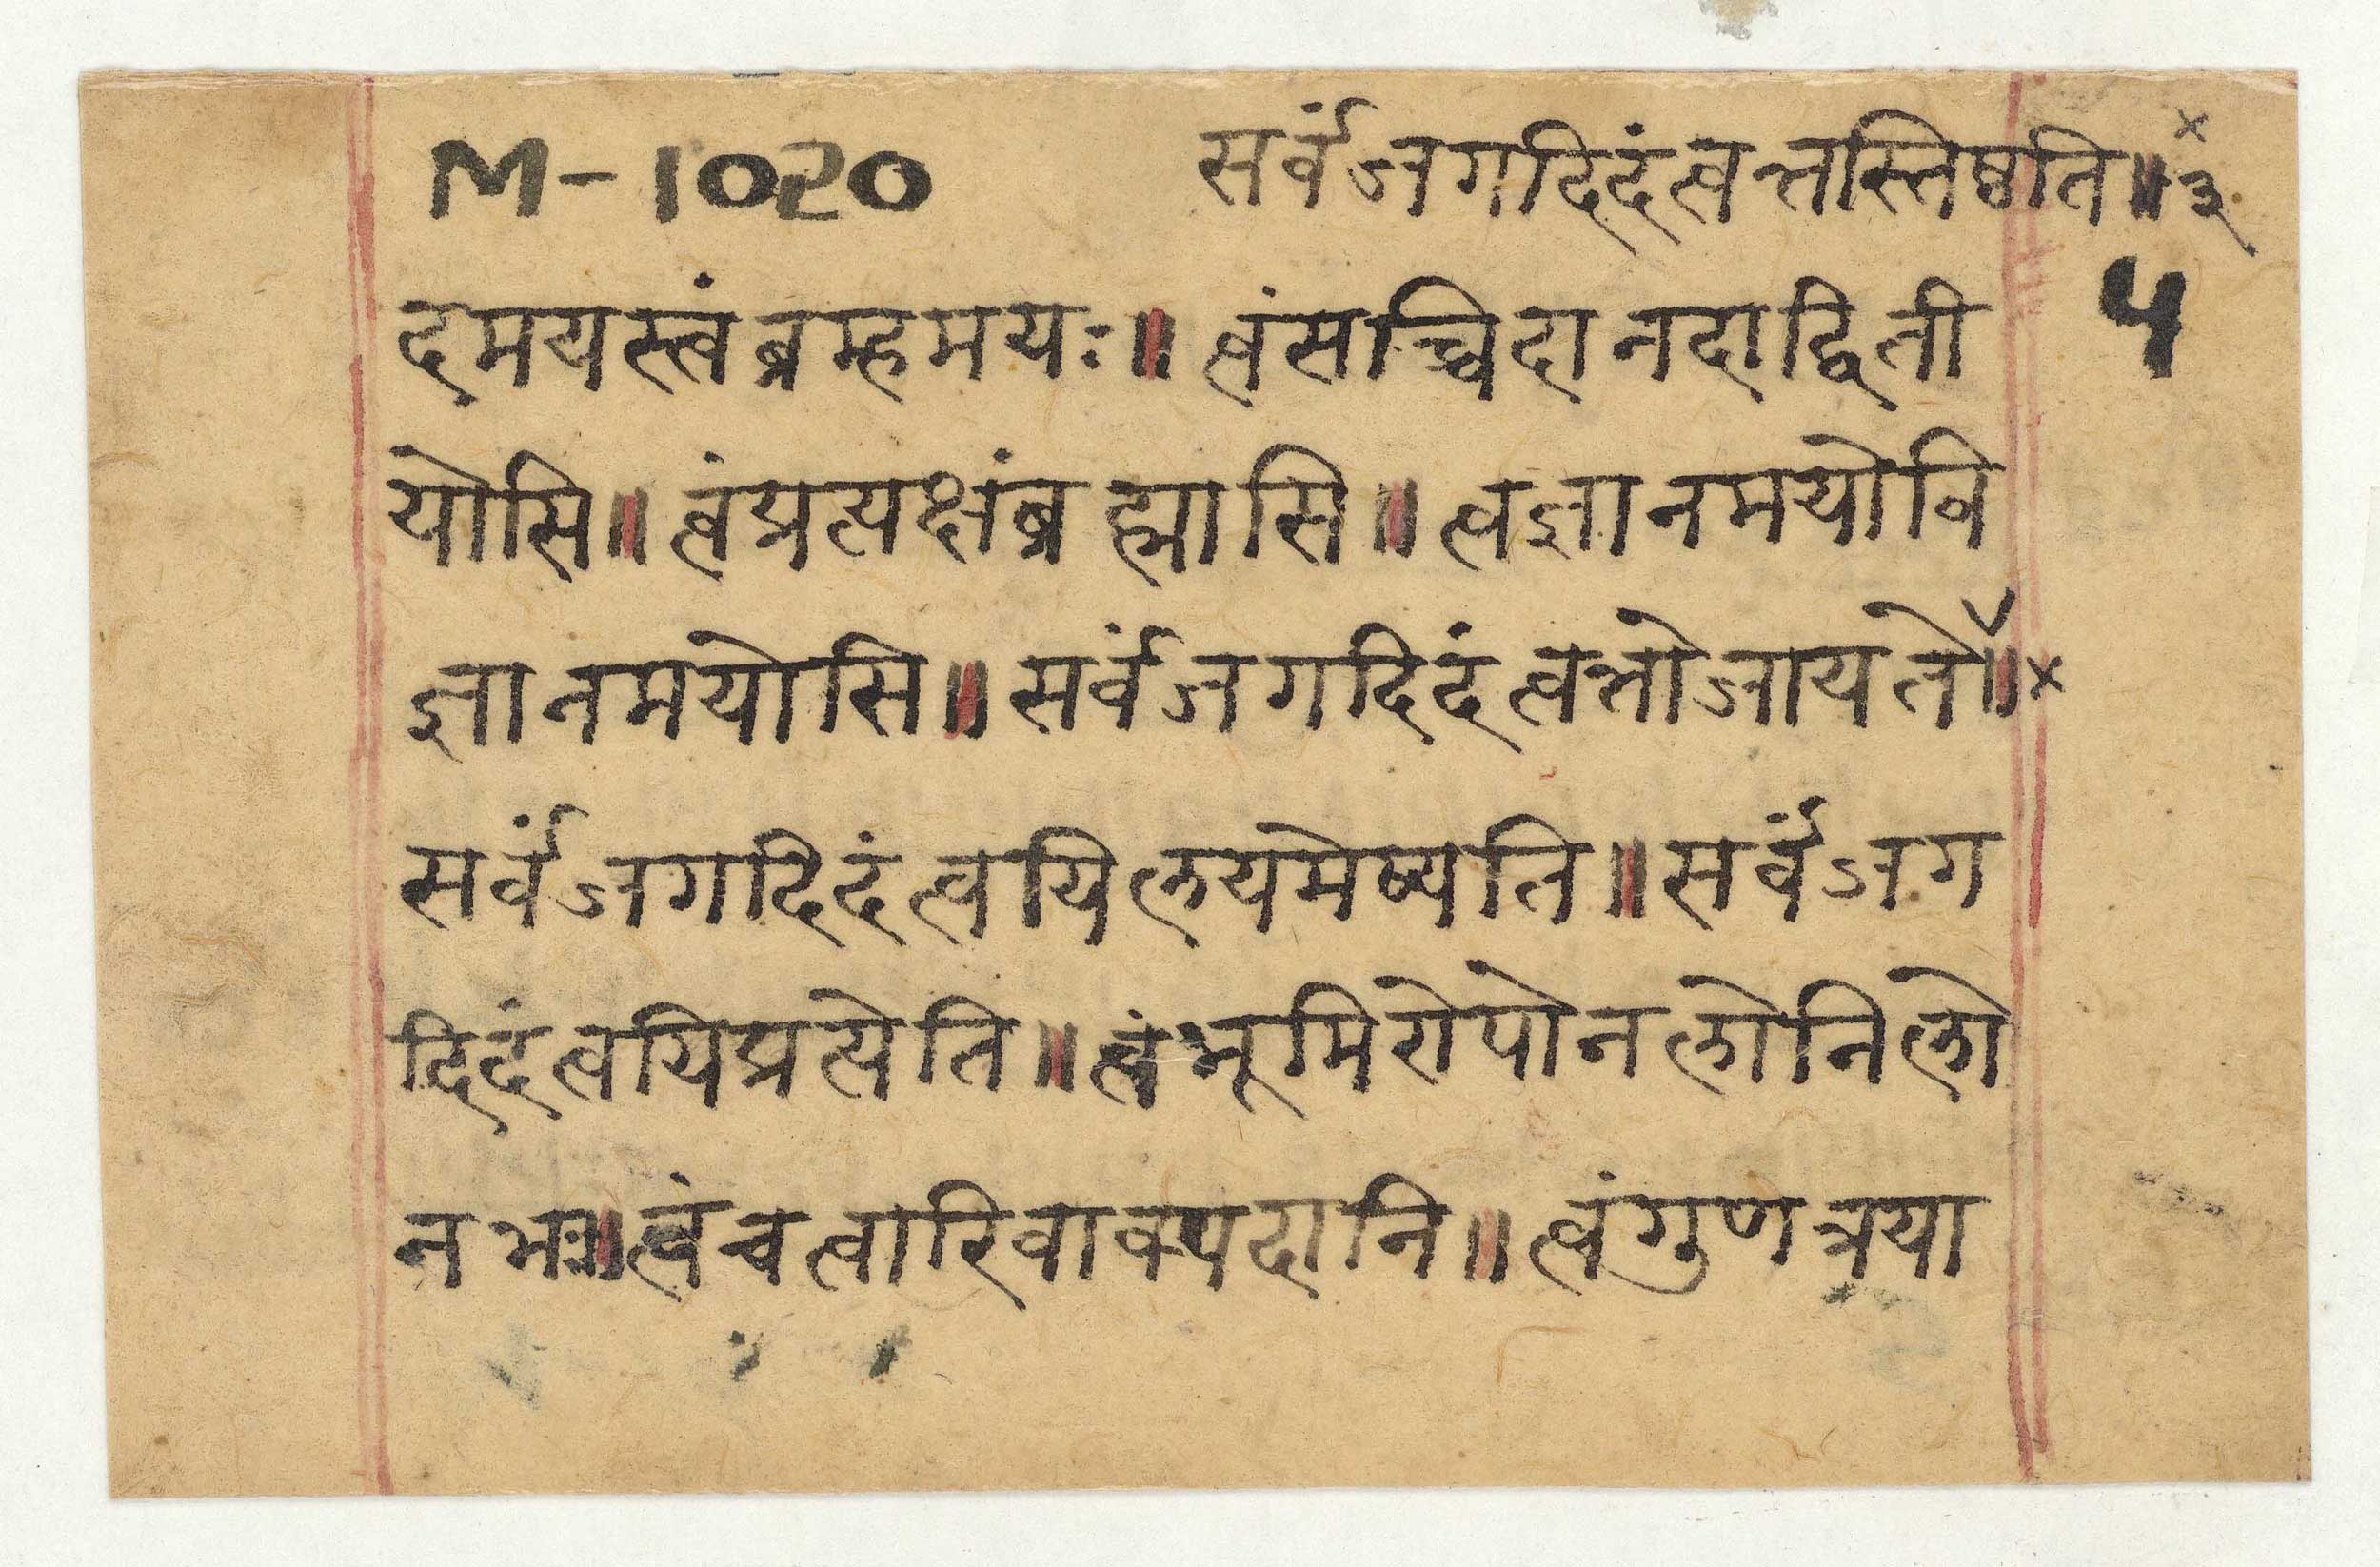 M-1020
सर्वंजगदिदंत्वत्तस्तिष्ठति॥३
×
५
दमयस्त्वंब्रम्हमयः॥त्वंसच्चिदानदाद्विती
योसि॥त्वंप्रत्यक्षंब्रह्मासि॥त्वज्ञानमयोवि
ज्ञानमयोसि॥सर्वंजगदिदंत्वत्तोजायते॥×
सर्वंजगदिदंत्वयिलयमेष्यति॥सर्वंजग
दिदंत्वयिप्रत्येति॥त्वंभूमिरोपोनलोनिलो
नभः॥त्वंचत्वारिवाक्पदानि॥त्वंगुणत्रया